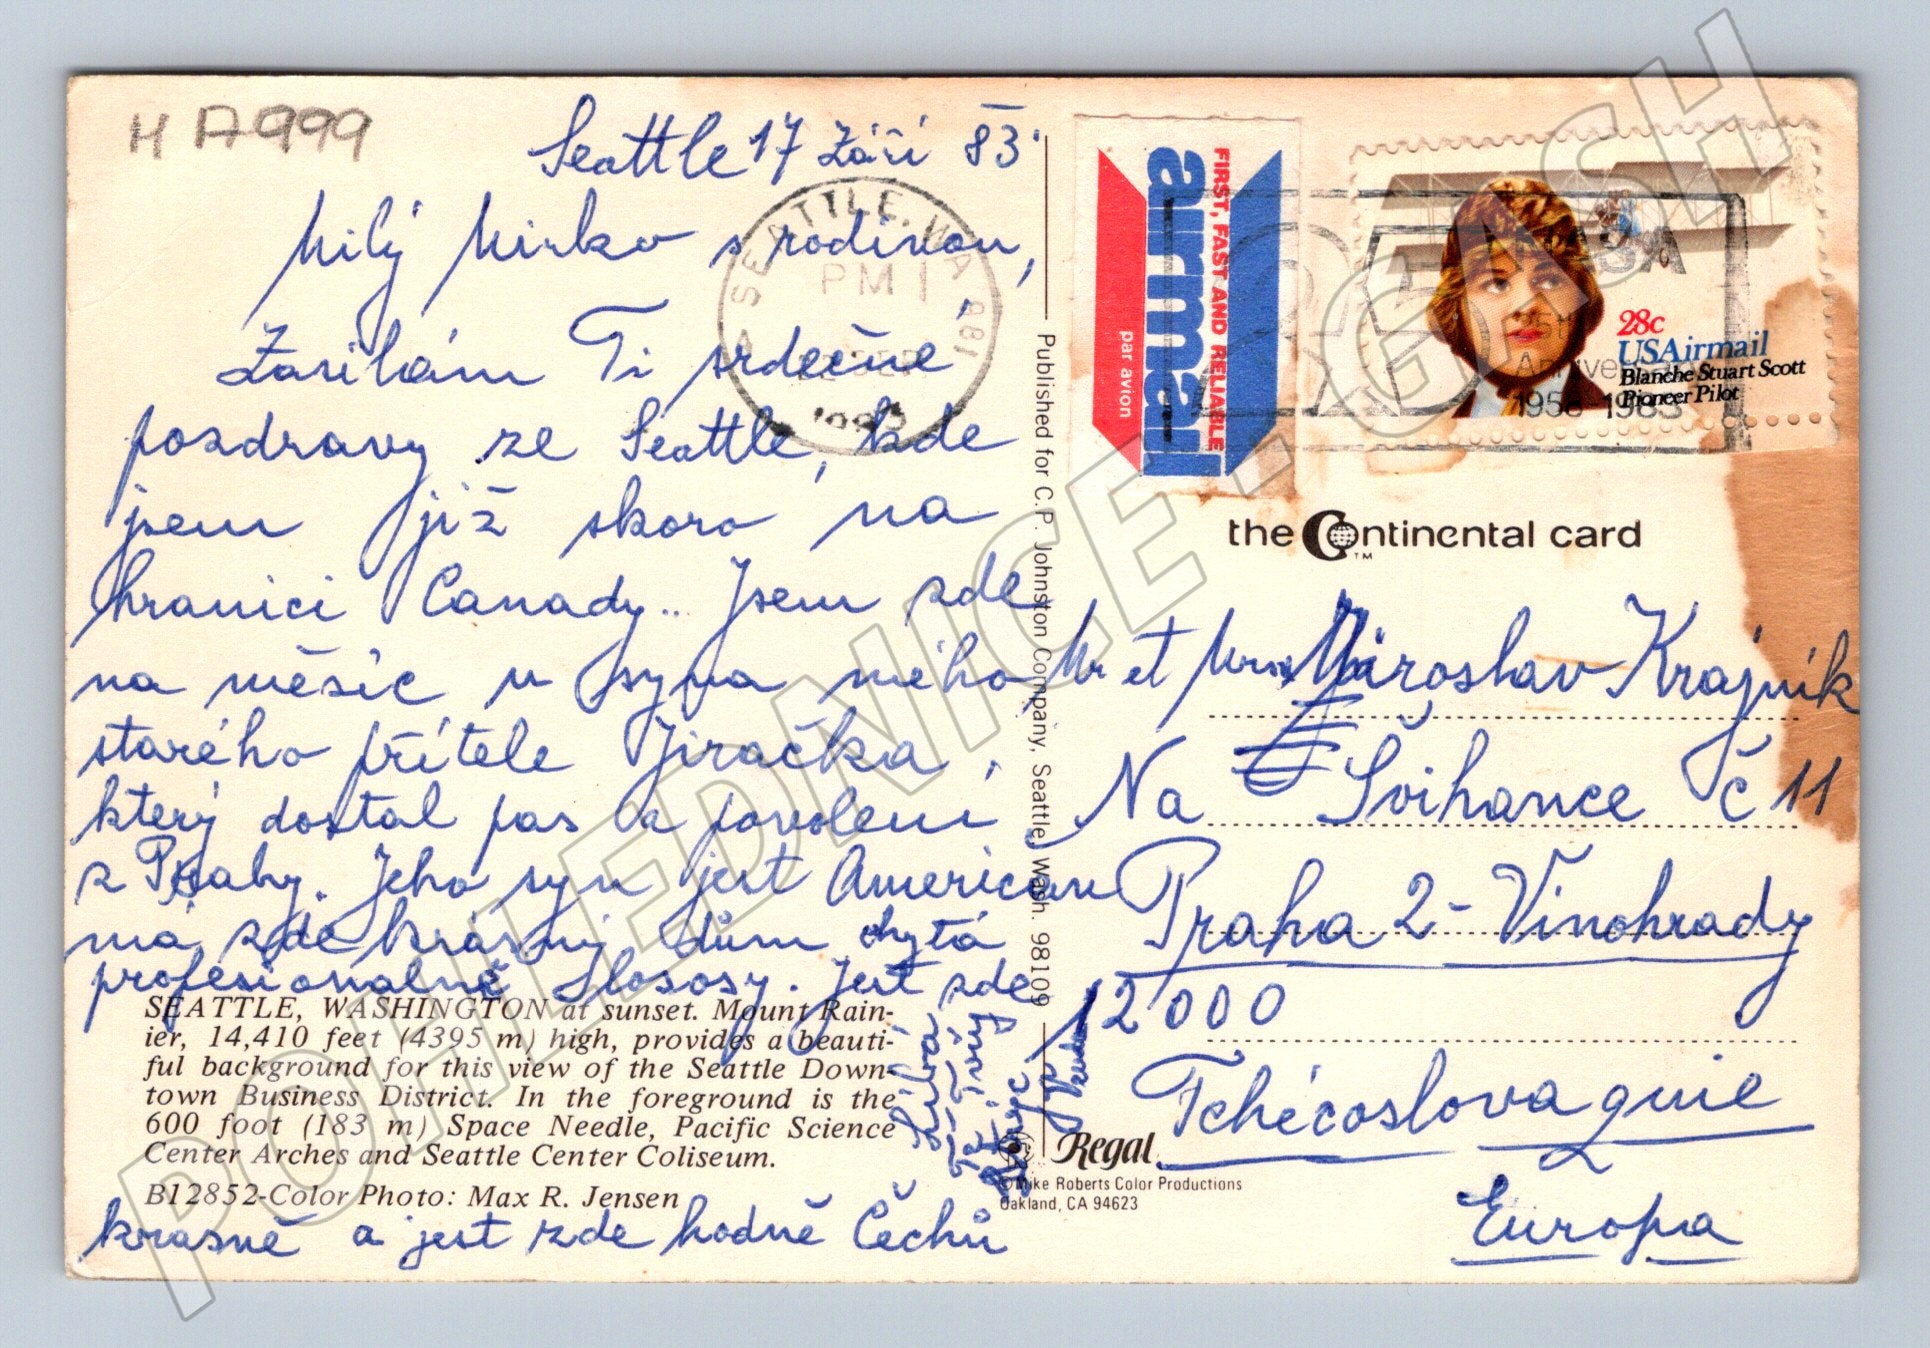 H A999
Seattle 17 Září 83
Milý Mirko s rodinou,
Zasílám Ti srdečné
pozdravy ze Seattle, kde
jsem již skoro na
hranici Canady.. Jsem zde
na měsíc u syna mého
starého přítele Jiračka,
který dostal pas a povolení
z Prahy. Jeho syn jest American
má zde krásný dům chytá
profesionalně Lososy. Jest zde
krasně a jest zde hodně Čechů
Líbá
Tě Tvůj
SEATTLE, WASHINGTON at sunset. Mount Rain-
ier, 14,410 feet (4395 m) high, provides a beauti-
ful background for this view of the Seattle Down-
town Business District. In the foreground is the
600 foot (183 m) Space Needle, Pacific Science
Center Arches and Seattle Center Coliseum.
B12852-Color Photo: Max R. Jensen
Published for C. P. Johnston Company, Seattle, Wash. 98109
SEATTLE, WA 981
PM
1983
FIRST, FAST AND RELIABLE
airmail
par avion
USA
28c
USAirmail
Blanche Stuart Scott
Pioneer Pilot
Anniversary
1958 1983
the Continental card
TM
Mr et Mme Miroslav Krajnik
Na Švihance č 11
Praha 2 - Vinohrady
12000
Tchécoslovaquie
Europa
Regal
© Mike Roberts Color Productions
Oakland, CA 94623
POHLEDNICE - GASH